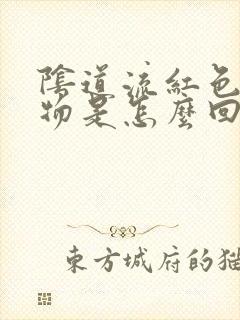 陰道流紅色
物是怎麼回
東方城府的猫